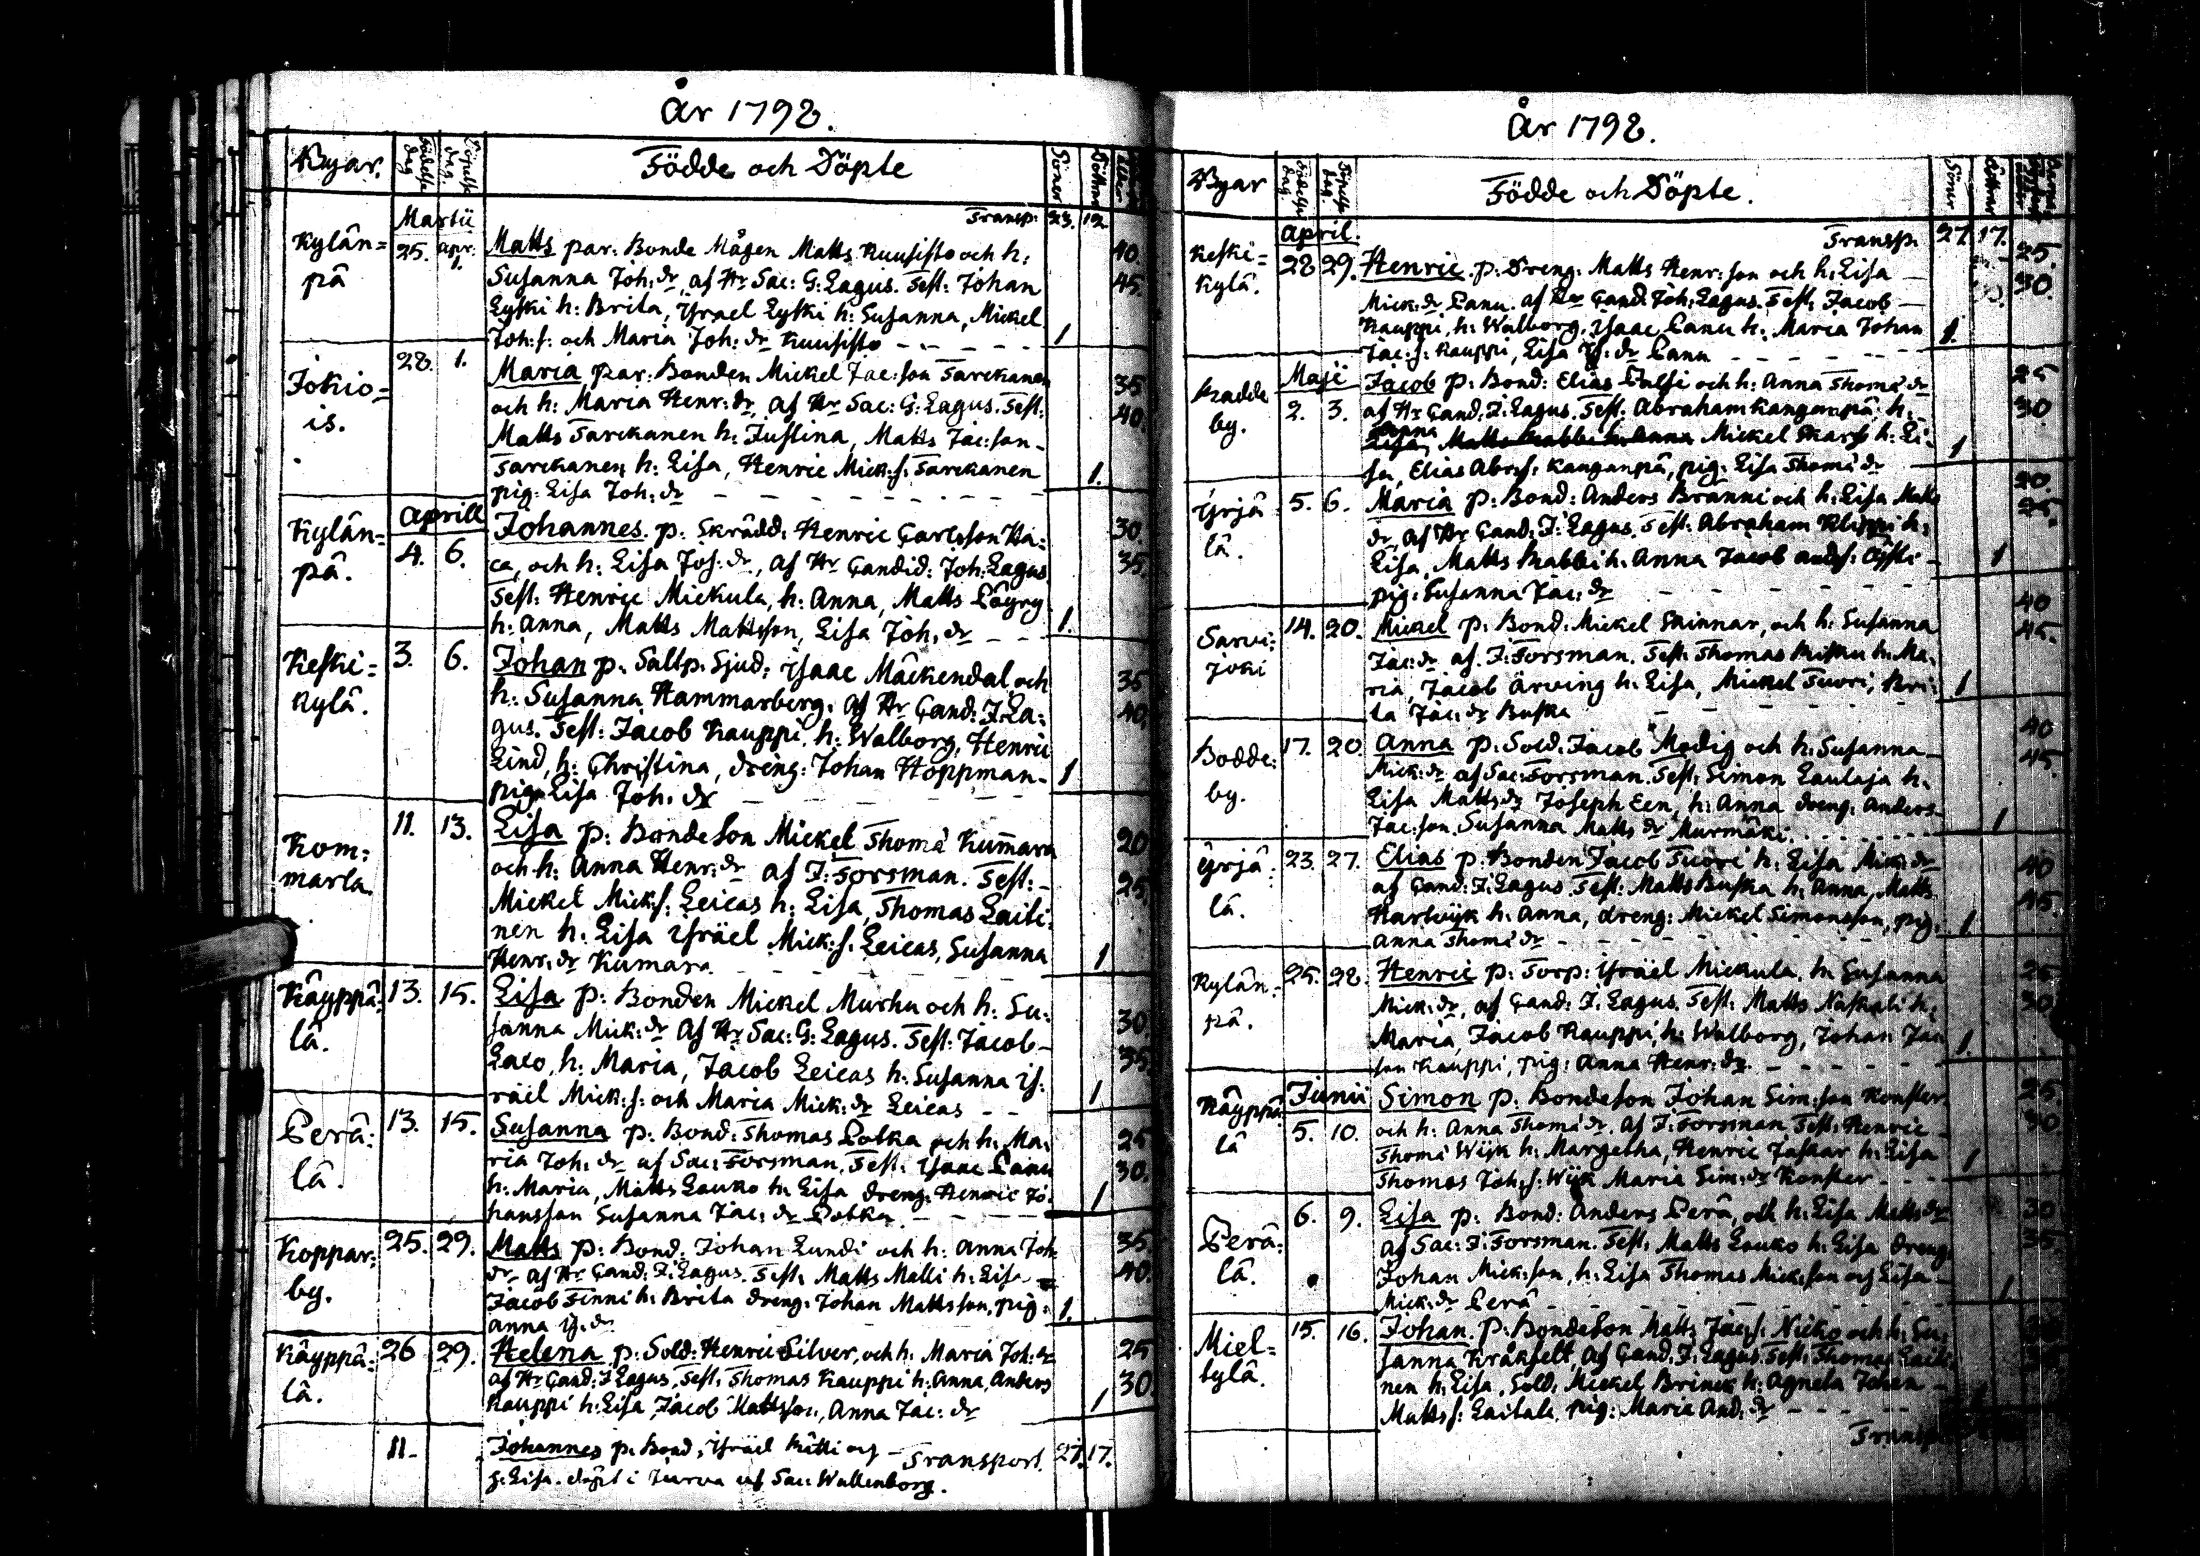 År 1792.
Byar. Födelse dag Döpelse dag. Födde och Döpte Söner Döttrar
Martii Transp: 23. 12.
Kylän= 25. apr. 1. Matts par: Bonde Mågen Matts Kuusisto och h: 40.
pä Susanna Joh: dr, af Hr Sac: G: Lagus. Test: Johan 45.
Lyski h: Brita, Israel Lyski h: Susanna, Mickel
Joh: s: och Maria Joh: dr Kuusisto - - - - - 1
Jokio= 28. 1. Maria par: Bonden Mickel Jac: son Tarckanen 35
is. och h: Maria Henr: dr, af Hr Sac: G: Lagus. Test: 40.
Matts Tarckanen h: Justina, Matts Jac: son -
Tarckanen h: Lisa, Henric Mick: s: Tarckanen 1.
pig: Lisa Joh: dr - - - - - - - -
Aprill
Kylän= 4. 6. Johannes. p: Skrädd: Henric Carlsson Ha= 30.
pä. ca, och h: Lisa Jos: dr, af Hr Candid: Joh: Lagus 35.
Test: Henric Mickula, h: Anna, Matts Löyry
h: Anna, Matts Mattsson, Lisa Joh: dr - - 1.
Keski= 3. 6. Johan p: Saltp: Sjud: Isaac Mäckendal och 35
kylä. h: Susanna Hammarberg. af Hr Cand: J: La= 40.
gus. Test: Jacob Kauppi. h: Walborg, Henric
Lind, h: Christina, dreng: Johan Hoppman - 1
pig: Lisa Joh: dr - - - - -
Kom= 11. 13. Lisa p: Bonde Son Mickel Thomæ Kumara 20
marla. och h: Anna Henr: dr af J: Forsman. Test: - 25.
Mickel Mick: s: Leicas h: Lisa, Thomas Laiti=
nen h: Lisa Israël Mick: s: Leicas, Susanna 1
Henr: dr Kumara - - - - - -
Käyppä= 13. 15. Lisa p: Bonden Mickel Murhu och h: Su= 30.
lä. sanna Mick: dr af Hr Sac: G: Lagus. Test: Jacob - 35.
Laco, h: Maria, Jacob Leicas h: Susanna Is=
räel Mick: s: och Maria Mick: dr Leicas - - 1
Perä= 13. 15. Susanna p: Bond: Thomas Potka och h: Ma= 25
lä. ria Joh: dr af Sac: Forsman. Test: Isaac Panu 30.
h: Maria, Matts Lauko h: Lisa dreng: Henric Jo= 1
hansson Susanna Jac: dr Potka. - - - -
Koppar= 25. 29. Matts p: Bond: Johan Lundi och h: Anna Joh: 35.
by. dr af Hr Cand: J: Lagus. Test: Matts Malli h: Lisa 40.
Jacob Finni h: Brita dreng: Johan Mattsson, pig: 1.
Anna Is: dr
Käyppä= 26 29. Helena p: Sold: Henric Silver, och h: Maria Joh: dr 25
lä. af Hr Cand: J Lagus, Test: Thomas Kauppi h: Anna, Anders 30.
Kauppi h: Lisa, Jacob Mattsson, Anna Jac: dr 1
11. Johannes p. Bond: Israël och Transport. 27. 17.
h: Lisa. döpt i Jurva af Sac: Wallenborg.
År 1792.
Byar Födelse dag. Döpelse dag. Födde och Döpte. Söner Döttrar
April. Transp. 27. 17.
Keski= 28 29. Henric. p: Dreng: Matts Henr: son och h: Lisa - 25.
kylä. Mick: dr Panu. af Hr Cand: Joh: Lagus. Test: Jacob - 30.
Kauppi, h: Walborg, Isaac Panu h: Maria Johan 1.
Jac: s: Kauppi, Lisa Is: dr Panu - - - - - -
Maji
Radde 2. 3. Jacob p: Bond: Elias och h: Anna Thomæ dr 25
by. af Hr Cand: J: Lagus. Test: Abraham Kanganpä h: 30
Anna Mickel Skarp h: Li= 1
sa, Elias Abr: s: Kanganpä, pig: Lisa Thomæ dr
Yrjä 5. 6. Maria p: Bond: Anders Branni och h: Lisa Matts 20
lä. dr, af Hr Cand: J: Lagus. Test: Abraham Klippi h: 25.
Lisa, Matts Rabbi h: Anna Jacob And: s: 1
pig: Susanna Jac: dr - - - -
Sarvi= 14. 20. Mickel p: Bond: Mickel Skinnar, och h: Susanna 40
joki Jac: dr af. J: Forsman. Test: Thomas Kisku h: Ma= 45.
ria, Jacob Ärving h: Lisa, Mickel Tuori, Bri= 1
ta Jac: dr Buska - - - - -
Bodde= 17. 20 Anna p: Sold: Jacob Modig och h: Susanna - 40
by. Mick: dr af Sac: Forsman. Test: Simon Laulaja h: 45.
Lisa Matts dr Joseph Een, h: Anna dreng: Anders
Jac: son Susanna Matts dr Murmäki. - - - - 1
Yrjä= 23. 27. Elias p: Bonden Jacob Tuori h: Lisa Mick: dr 40
lä. af Cand: J: Lagus Test: Matts Buska h: Anna, Matts 45.
Hartvijk h: Anna, dreng: Mickel Simonsson, pig: 1
Anna Thomæ dr - - - - - - -
Kylän= 25. 28. Henric p: Torp: Israël Mickula, h: Susanna 25
pä. Mick: dr, af Cand: J: Lagus. Test: Matts Näskali h: 30.
Maria, Jacob Kauppi, h: Walborg, Johan Jac: 1.
son Kauppi, pig: Anna Henr: dr. - - - - -
Junii
Käyppä= 5. 10. Simon p: Bonde Son Johan Sim: son Konster 25.
lä och h: Anna Thomæ dr. af J: Forsman Test: Henric 30
Thomæ Wijk h: Margetha, Henric Jaskar h: Lisa 1
Thomas Joh: s: Wijk Maria Sim: dr Konster - - -
Perä= 6. 9. Lisa p: Bond: Anders Perä, och h: Lisa Matts dr 30
lä. af Sac: J: Forsman. Test: Matts Lauko h: Lisa dreng: 35.
Johan Mick: son, h: Lisa Thomas Mick: son och Lisa - 1
Mick: dr Perä - - - - - -
Miel= 15. 16. Johan. p: Bonde Son Matts Jac: s: Nicko och h: Su=
tylä. sanna Kråkfelt, af Cand: J: Lagus. Test: Thomas Laiti=
nen h: Lisa, Sold: Mickel Brinck h: Agneta Johan -
Matts s: Laitala, pig: Maria And: dr - - - - -
Transp